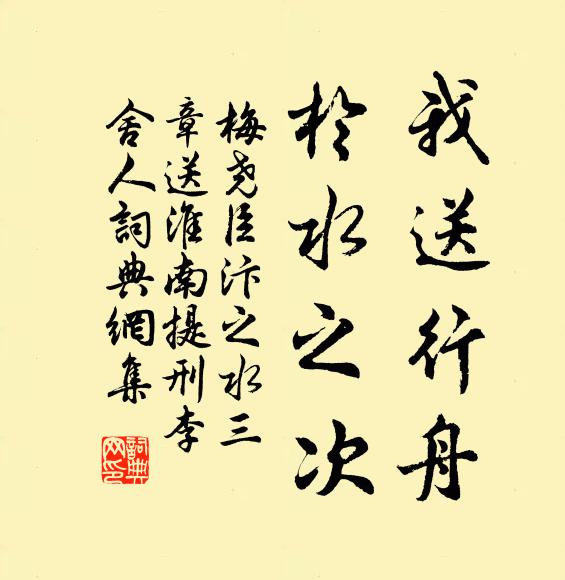 我送行舟
於水之次
梅尧臣汴之水三
章送淮南提刑李
舍人詞典網集
詞典网印